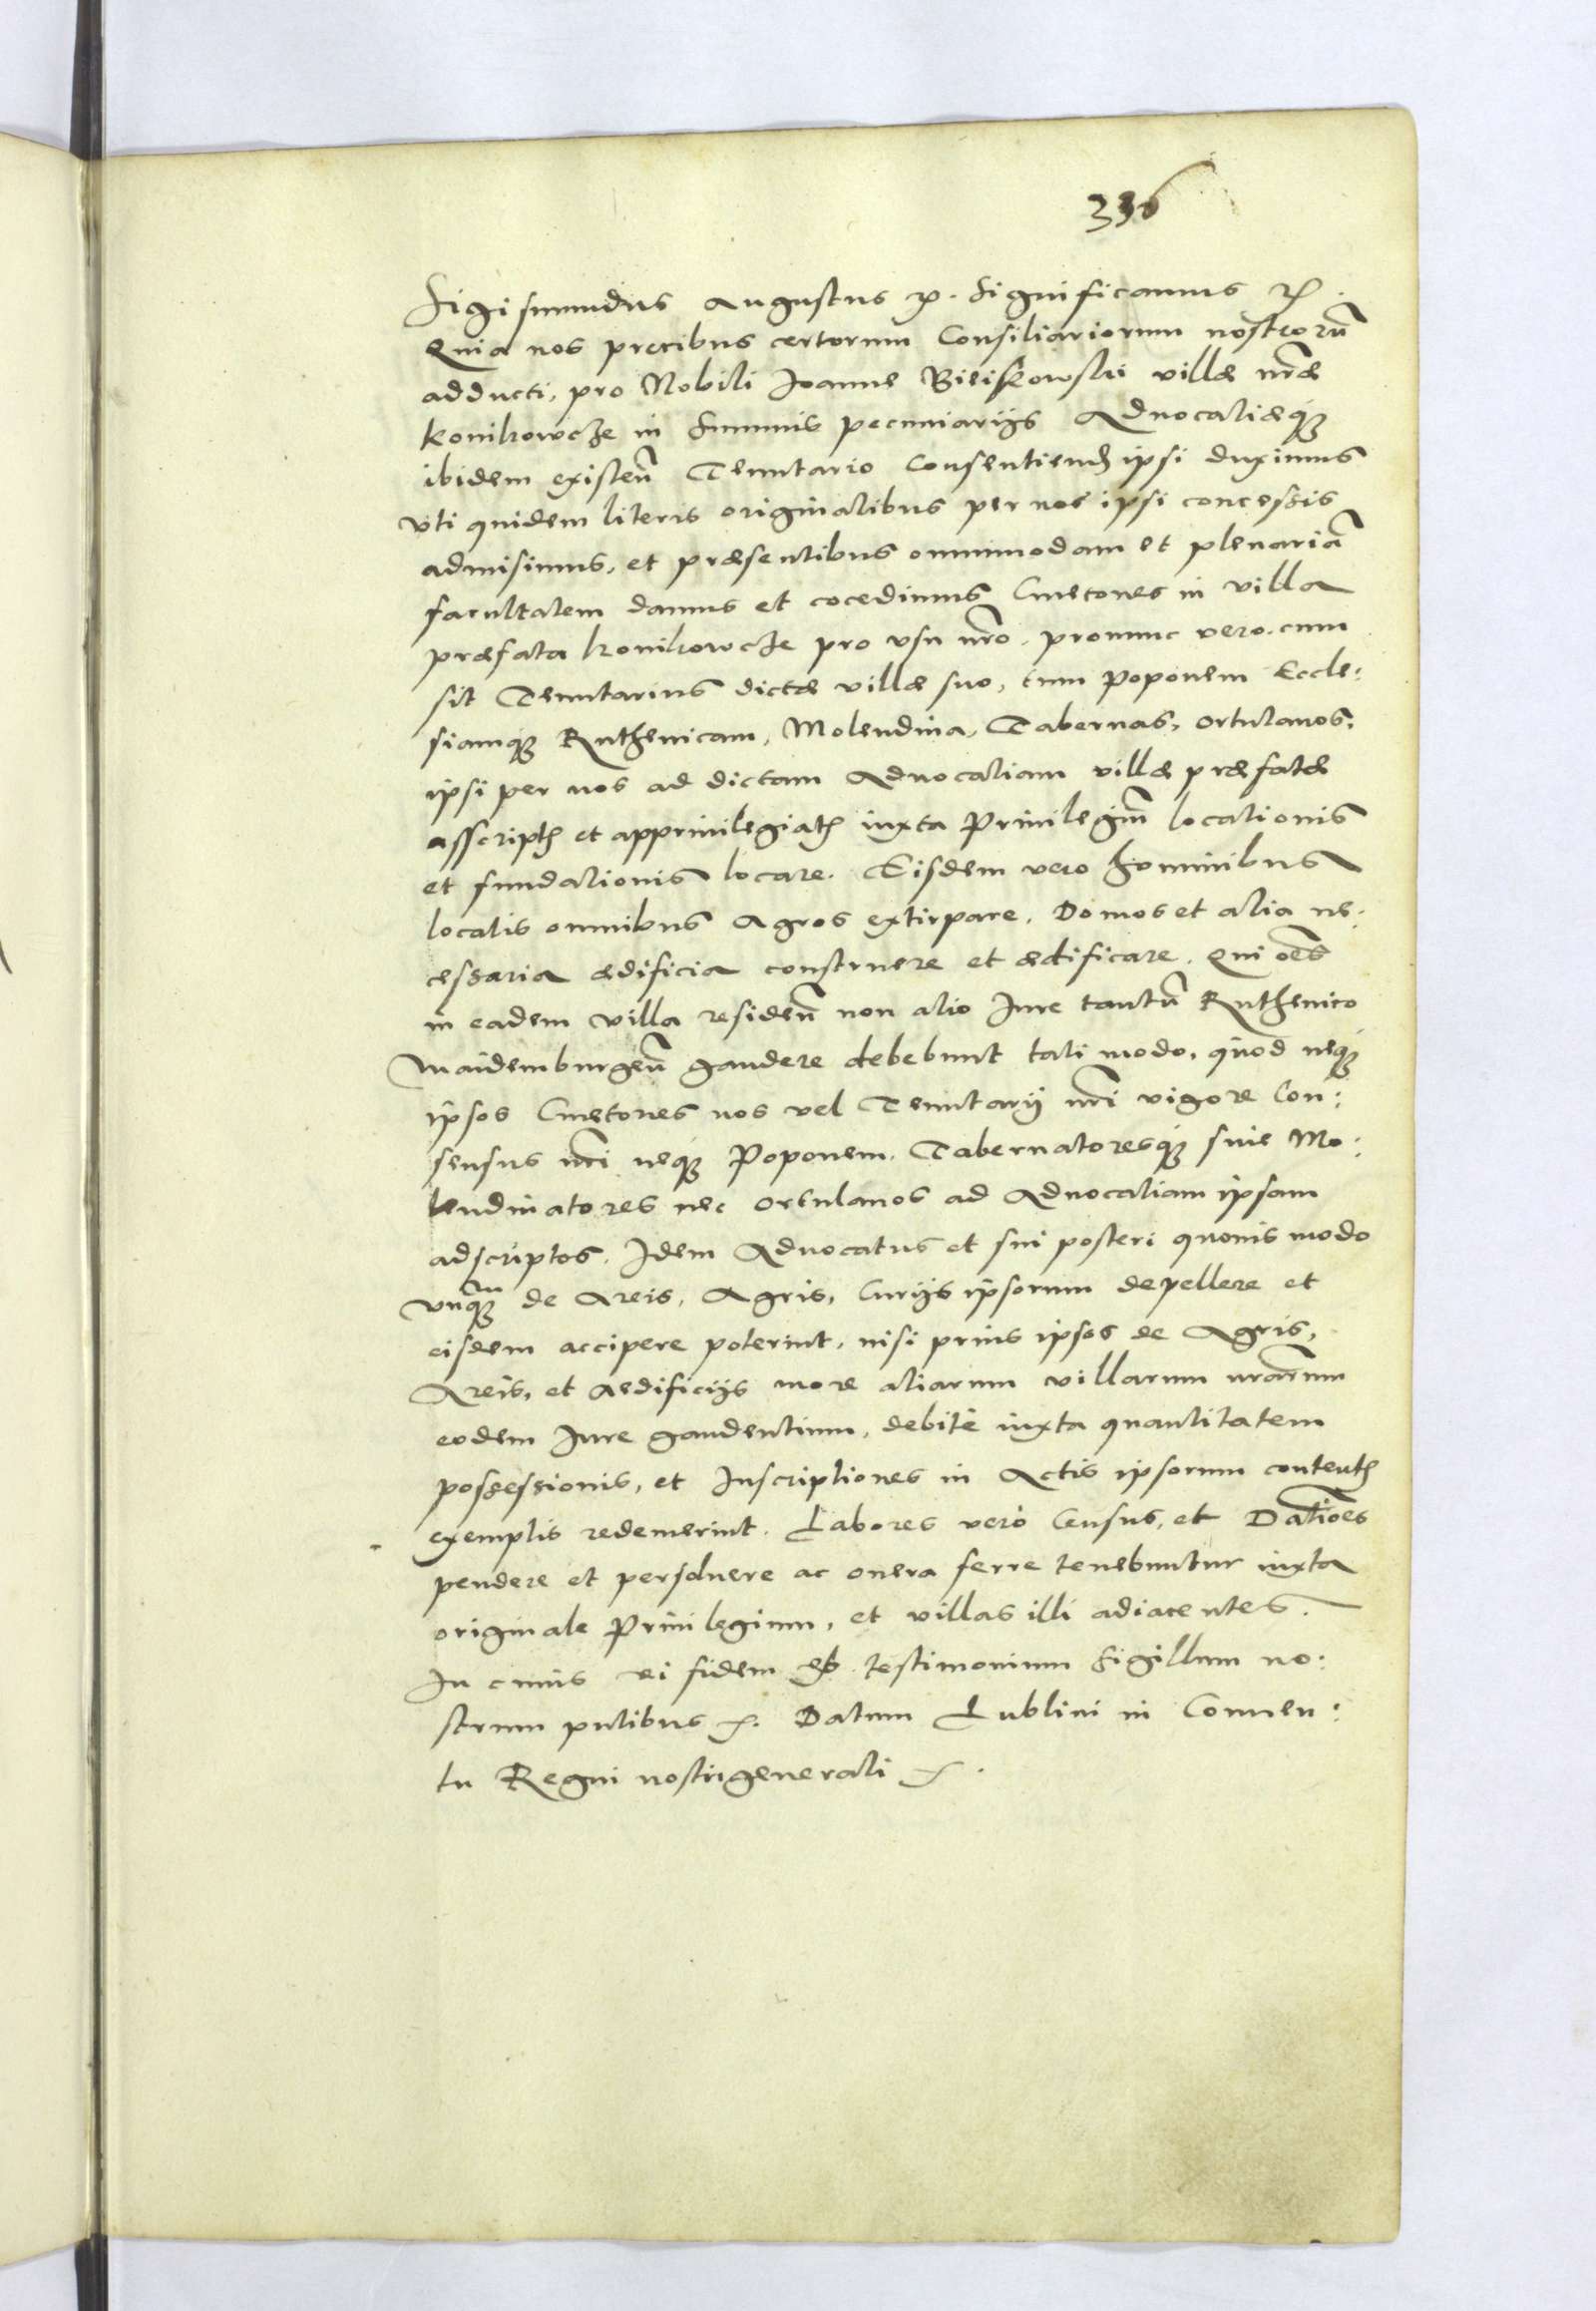 336
Sigismundus Augustus etc. Significamus etc.
Quia nos precibus certorum Consiliariorum nostrorũ
adducti, pro Nobili Joanne villæ nr̃æ
Konikowcze in summis pecuniarijs Aduocatiæq3
ibidem existeñ Tenutario consentiend ipsi duximus
vti quidem literis originalibus per nos ipsi concessis
admisimus, et præsentibus omnimodam et plenariã
facultatem damus et cocedimus Cmetones in villa
præfata Konikowcze pro vsu nr̃o. pronunc vero. cum
sit Tenutarius dictæ villæ suo, tum Poponem Eccle:
siamq3 Ruthenicam, Molendina, Tabernas, ortulanos,
ipsi per nos ad dictam Aduocatiam villæ præfatæ
asscript et appriuilegiat iuxta Priuilegiũ locationis
et fundationis locare. Eisdem vero hominibus
locatis omnibus Agros extirpare. Domos et alia ne.
cessaria ædificia construere et ædificare. Qui oẽs
in eadem villa resideñ non alio Jure tantũ Ruthenico
Maidemburgeñ gaudere debebunt tali modo, quod neq3
ipsos Cmetones nos vel Tenutarij nr̃i vigore Con:
sensus nr̃i neq3 Poponem. Tabernatoresq3 siue Mo:
lendinatores nec ortulanos ad Aduocatiam ipsam
adscriptos. Idem Aduocatus et sui posteri quouis modo
vnq3 de Areis, Agris, Curijs ipsorum depellere et
eisdem accipere poterint, nisi prius ipsos de Agris,
Areis, et Aedificijs more aliarum villarum nr̃arum
eodem Jure gaudentium, debitè iuxta quantitatem
possessionis, et Inscriptiones in Actis ipsorum content
exemplis redemerint. Labores verò Census, et Datiões
pendere et persoluere ac onera ferre tenebuntur iuxta
originale Priuilegium, et villas illi adiacentes.
In cuius rei fidem et testimonium Sigillum no:
strum pñtibus etc. Datum Lublini in Conuen:
tu Regni nostri generali etc.